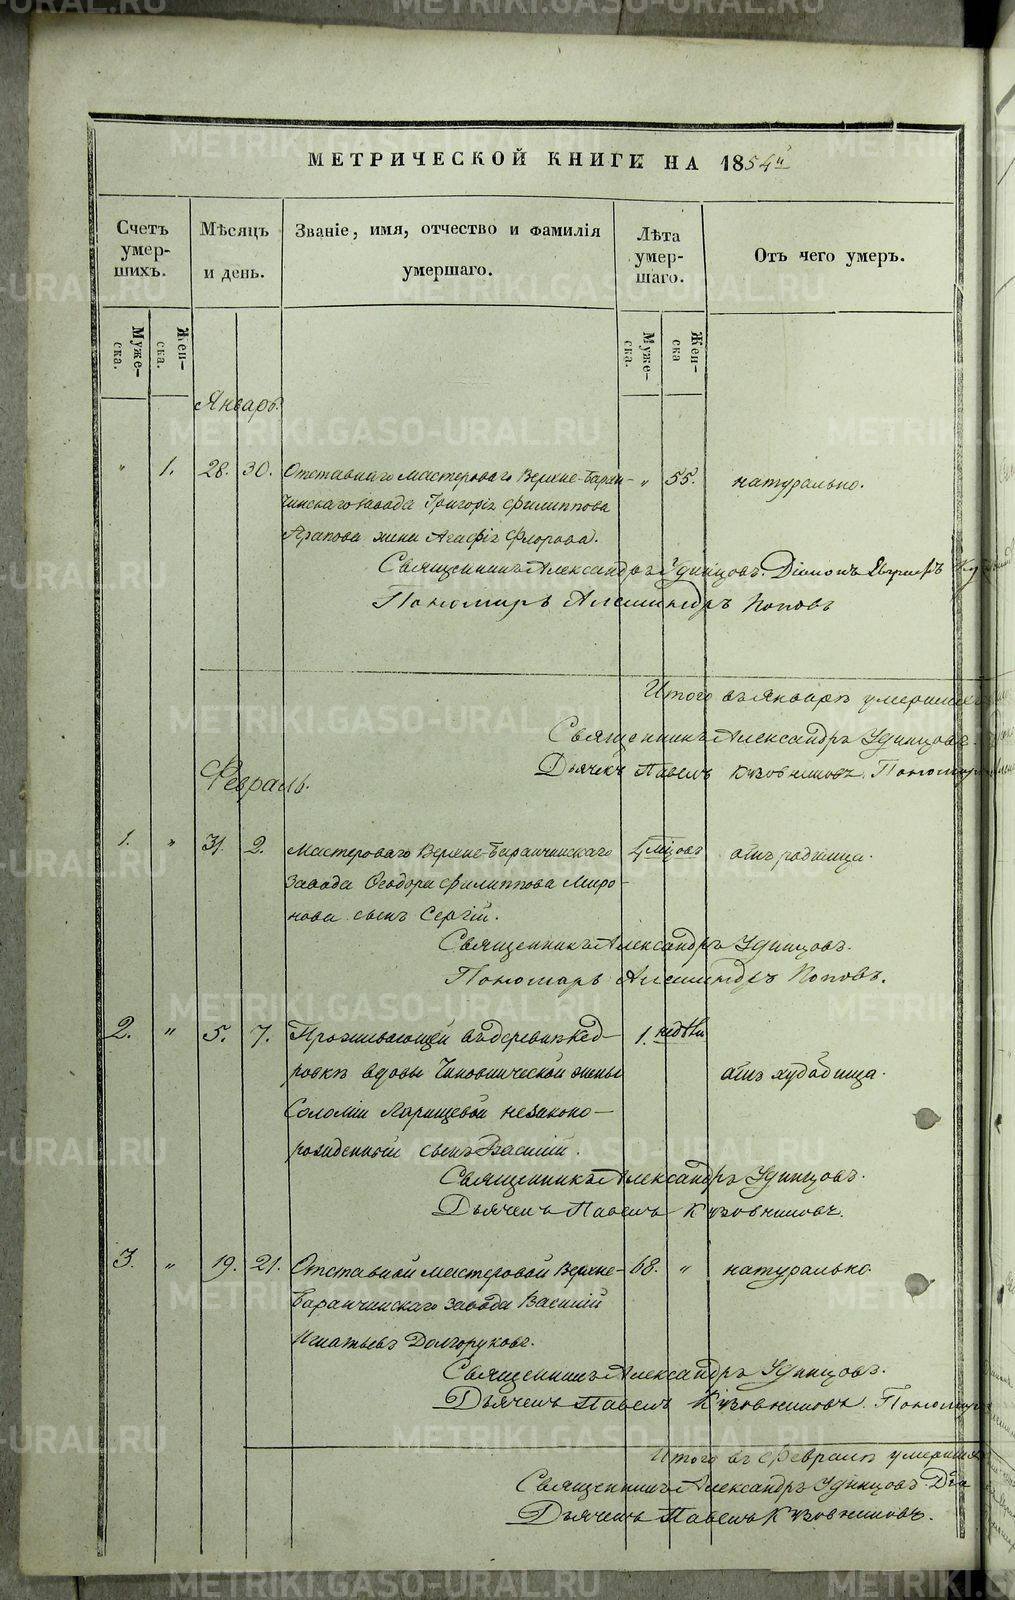 МЕТРИЧЕСКОЙ КНИГИ НА 1854й
Счетъ умер-шихъ.
Мѣсяцъ и день.
Званіе, имя, отчество и фамилія умершаго.
Лѣта умер-шаго.
Отъ чего умеръ.
Муже-ска.
Жен-ска.
Муже-ска.
Жен-ска
Январь.
" 1. 28. 30. Отставнаго мастероваго Верхне-Баран- " 55. натурально.
чинскаго завода Григорія Филиппова
Арапова жена Агафія Флорова.
Священникъ Александръ Удинцовъ. Діаконъ
Пономарь Александръ Поповъ
Итого въ Январѣ умершихъ
Священникъ Александръ Удинцовъ.
Дьячекъ Павелъ Кузовниковъ. Пономарь
Февраль.
1. " 31. 2. Мастероваго Верхне-Баранчинскаго 4 мѣсцовъ отъ родимца.
завода Ѳеодора Филиппова Миро-
нова сынъ Сергій.
Священникъ Александръ Удинцовъ.
Пономарь Александръ Поповъ.
2. " 5. 7. Проживающей въ деревнѣ Кед- 1. недѣли
ровкѣ вдовы Чиновнической жены отъ худобища.
Соломіи Ларищевой незаконо-
рожденный сынъ Василій.
Священникъ Александръ Удинцовъ.
Дьячекъ Павелъ Кузовниковъ.
3. " 19. 21. Отставной мастеровой Верхне- 68. " натурально.
Баранчинскаго завода Василій
Игнатьевъ Долгоруковъ.
Священникъ Александръ Удинцовъ.
Дьячекъ Павелъ Кузовниковъ. Пономарь
Итого въ Февралѣ умершихъ
Священникъ Александръ Удинцовъ. Діа
Дьячекъ Павелъ Кузовниковъ.
METRIKI.GASO-URAL.RU